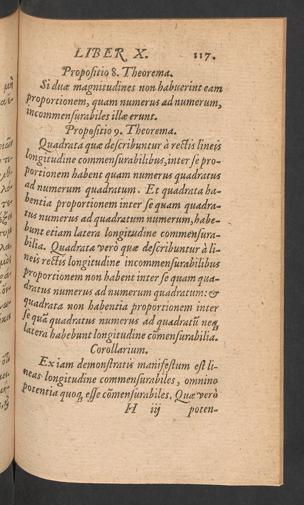 LIBER X. 117.
Propositio 8. Theorema.
Si duæ magnitudines non habuerint eam
proportionem, quam numerus ad numerum,
incommensurabiles illæ erunt.
Propositio 9. Theorema.
Quadrata quæ describuntur à rectis lineis
longitudine commensurabilibus, inter se pro-
portionem habent quam numerus quadratus
ad numerum quadratum. Et quadrata ha-
bentia proportionem inter se quam quadra-
tus numerus ad quadratum numerum, habe-
bunt etiam latera longitudine commensura-
bilia. Quadrata verò quæ describuntur à li-
neis rectis longitudine incommensurabilibus
proportionem non habent inter se quam qua-
dratus numerus ad numerum quadratum: &
quadrata non habentia proportionem inter
se quã quadratus numerus ad quadratũ neq,
latera habebunt longitudine cõmensurabilia.
Corollarium.
Ex iam demonstratis manifestum est li-
neas longitudine commensurabiles, omnino
potentia quoq, esse cõmensurabiles. Quæ verò
H iij poten-